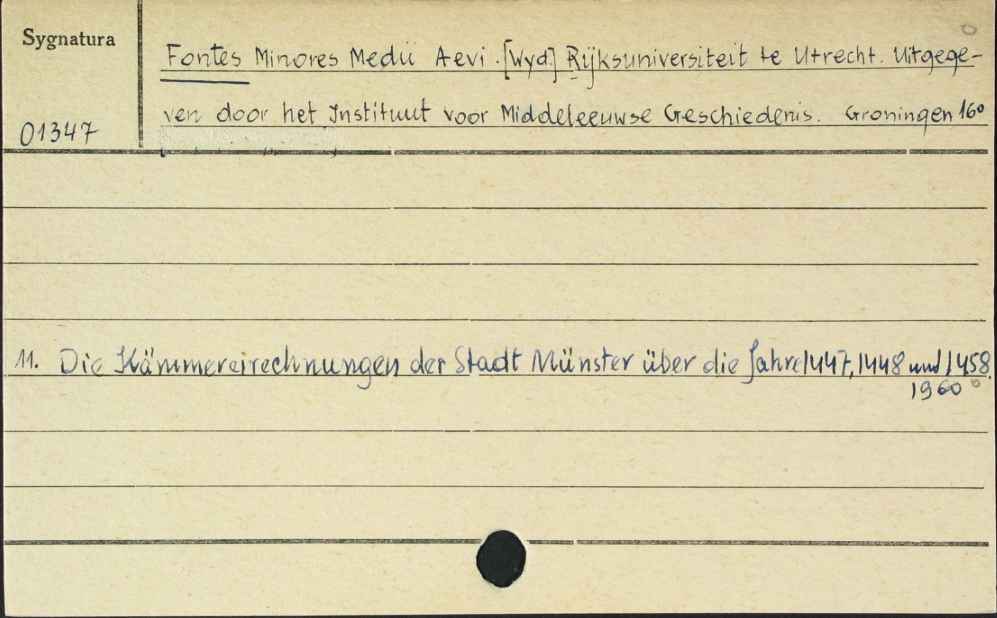 Sygnatura
Fontes Minores Medii Aevi. [Wyd] Rijksuniversiteit te Utrecht. Uitgege-
ven door het Instituut voor Middeleeuwse Geschiedenis. Groningen 16°
01347
11. Die Kämmereirechnungen der Stadt Münster über die Jahre 1447, 1448 und 1458.
1960